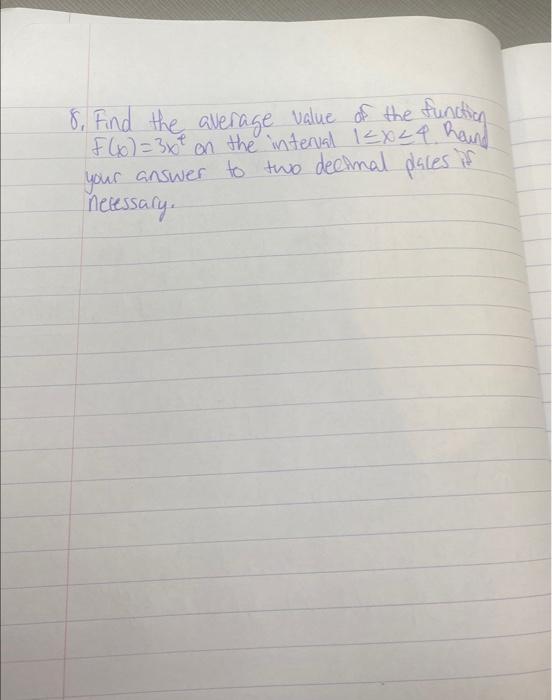 8. Find the average value of the function
f(x)=3x⁴ on the interval 1≤x≤4. Round
your answer to two decimal places if
necessary.